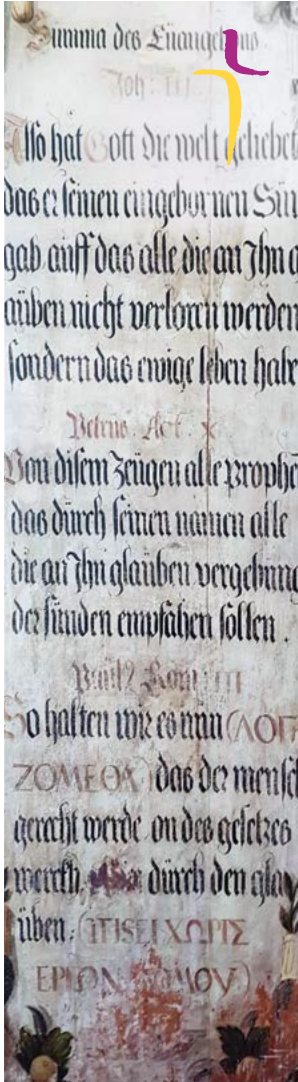 Summa des Eüangelions
Joh: III
Also hat Gott die welt geliebet
das er seinen eingebornen Sün
gab auff das alle die an Ihn g
aüben nicht verloren werden
sondern das ewige leben habe
Petrus. Act. X
Von disem zeügen alle prophe
das dürch seinen namen alle
die an Ihn glaüben vergebung
der sünden empfahen sollen.
Paul9 Rom: III
So halten wir es nün (ΛΟΓΙ
ΖΟΜΕΘΑ) das der mensch
gerecht werde on des gesetzes
werckh. dürch den gla
üben: (ΠΙΣΕΙ ΧΩΡΙΣ
ΕΡΓΩΝ ΝΟΜΟΥ)